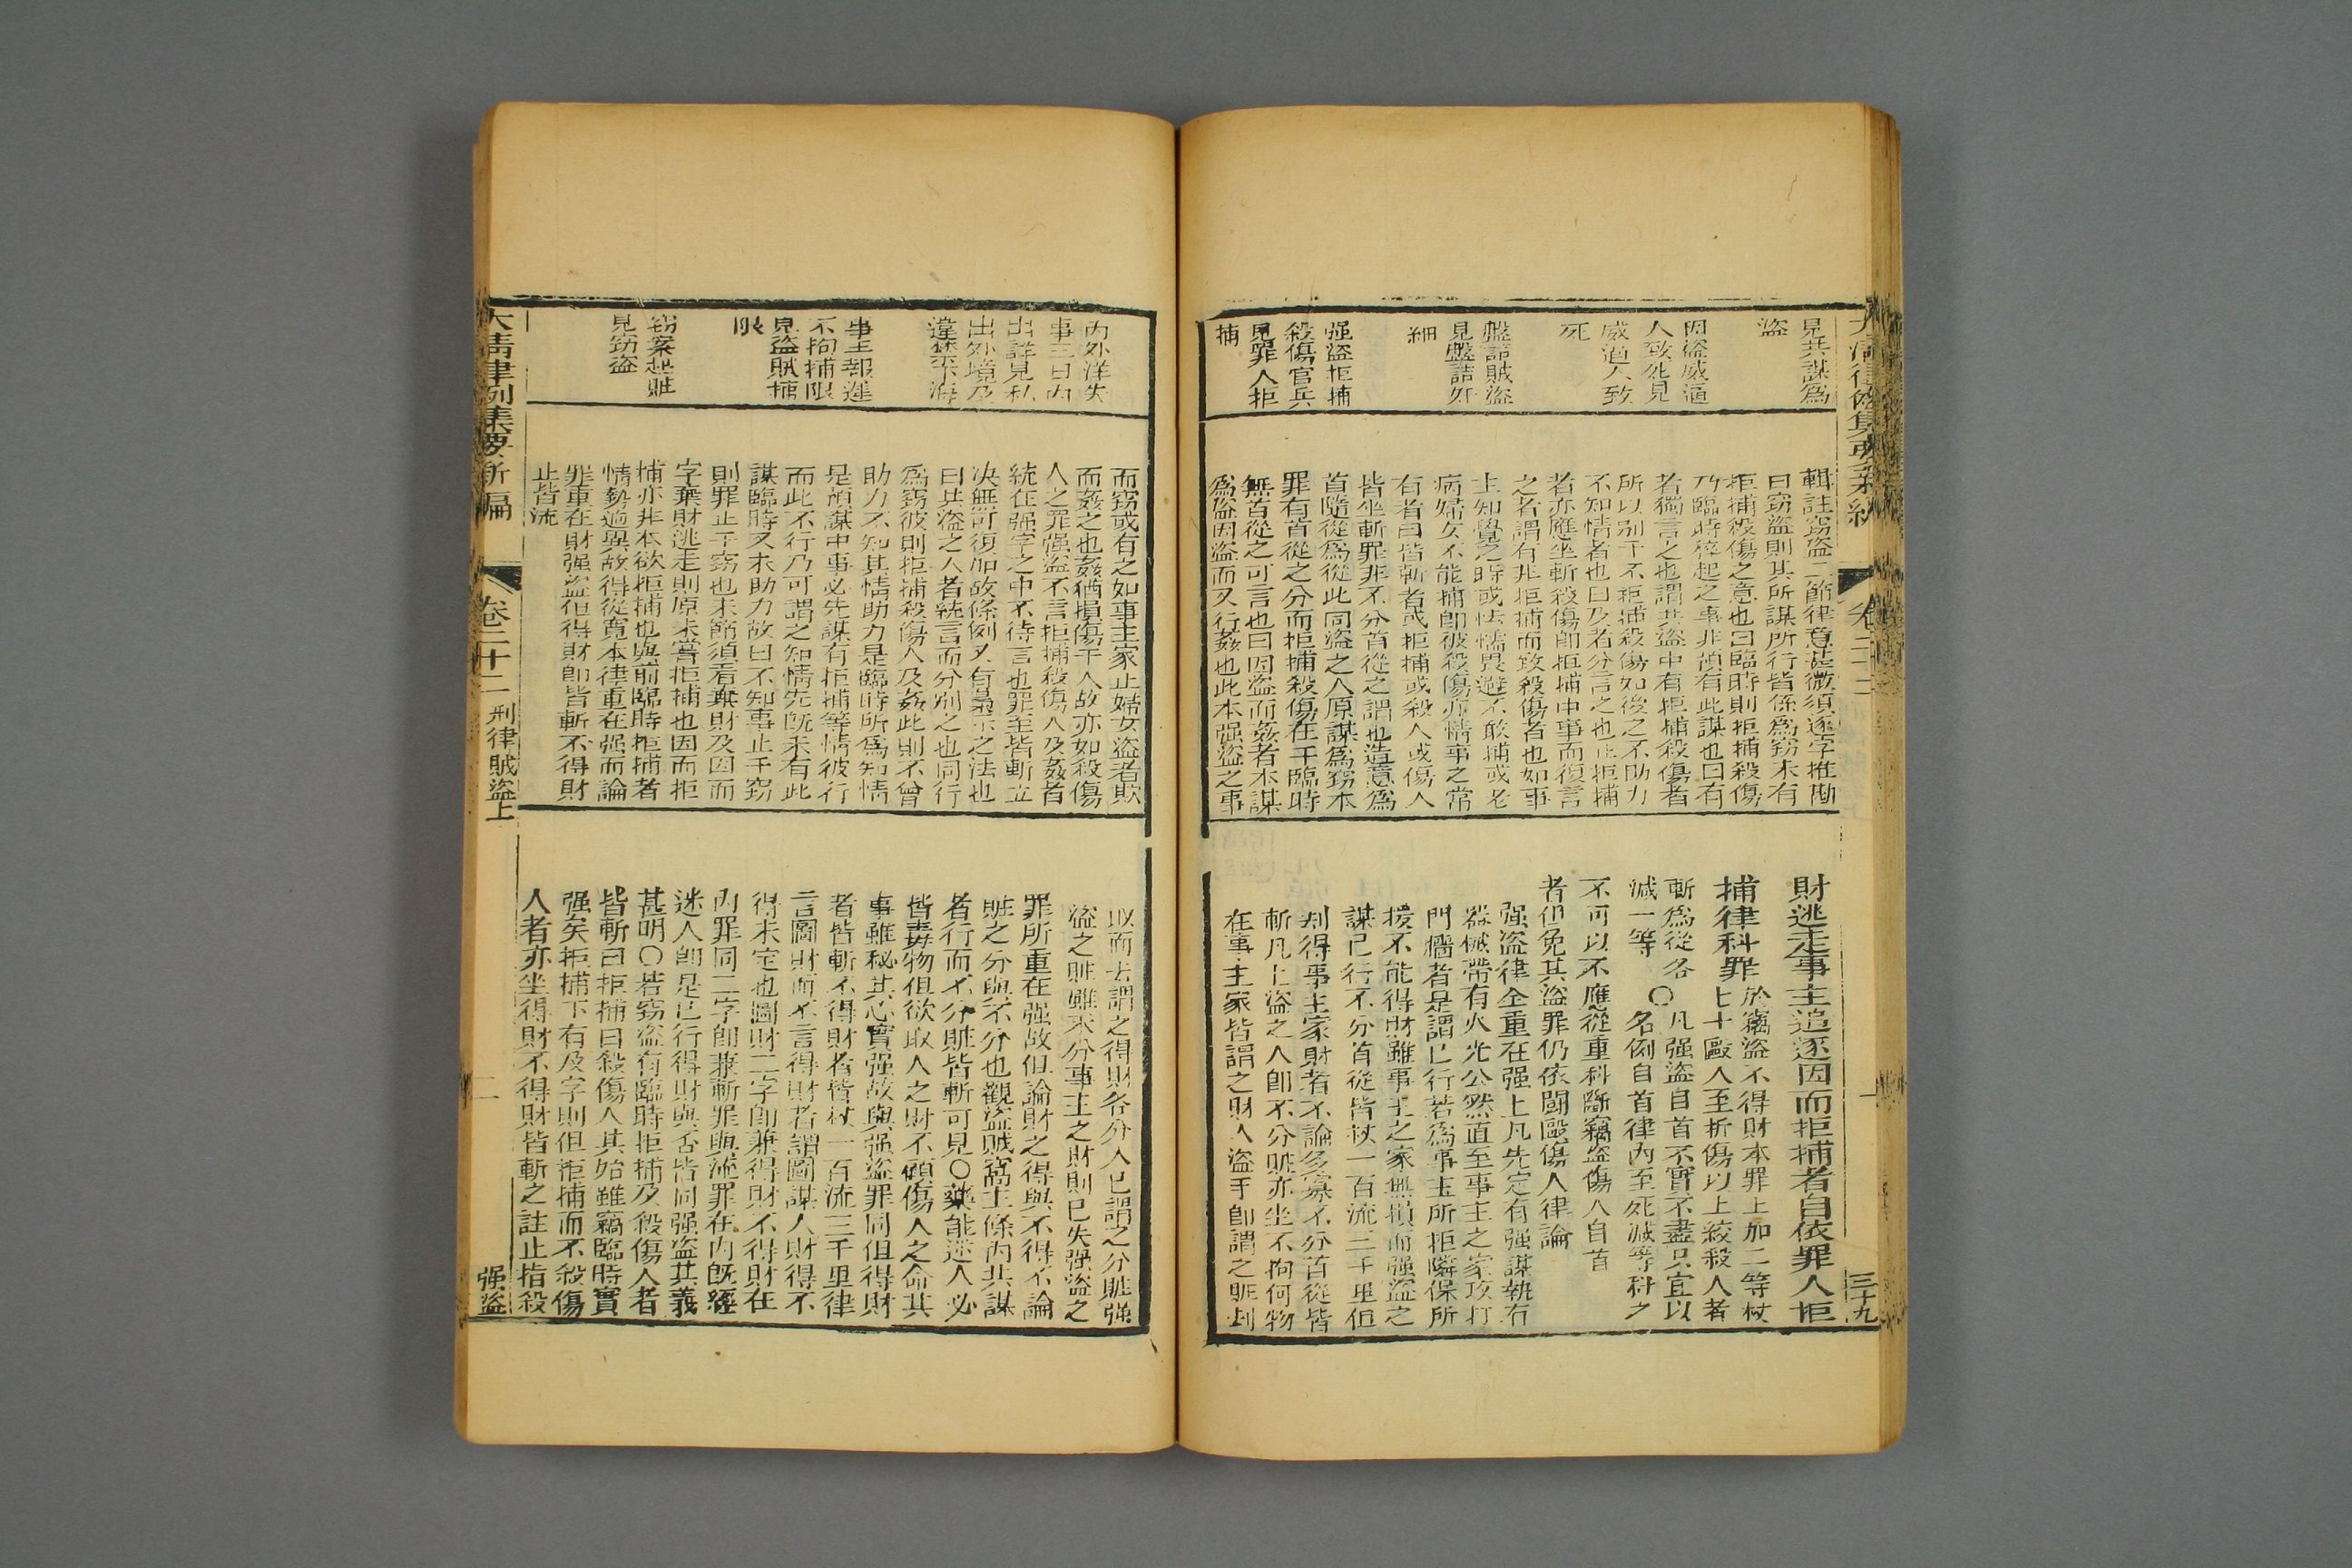 見共謀爲
盜
因盜威逼
人致死見
威逼人致
死
盤詰賊盜
見盤詰奸
細
强盜拒捕
殺傷官兵
見罪人拒
捕
輯註竊盜二節律意甚微須逐字推勘
曰窃盜則其所謀所行皆係爲窃未有
拒捕殺傷之意也曰臨時則拒捕殺傷
乃臨時猝起之事非預有此謀也曰有
者獨言之也謂共盜中有拒捕殺傷者
所以别于不拒捕殺傷如後之不助力
不知情者也曰及者分言之也止拒捕
者亦應坐斬殺傷卽拒捕中事而復言
之者謂有非拒捕而致殺傷者也如事
主知覺之時或怯懦畏避不敢捕或老
病婦女不能捕卽被殺傷亦情事之常
有者曰皆斬者或拒捕或殺人或傷人
皆坐斬罪非不分首從之謂也造意爲
首隨從爲從此同盜之人原謀爲窃本
罪有首從之分而拒捕殺傷在于臨時
無首從之可言也曰因盜而姦者本謀
爲盜因盜而又行姦也此本强盜之事
財逃走事主追逐因而拒捕者自依罪人拒
捕律科罪
於竊盜不得財本罪上加二等杖
七十毆人至折傷以上絞殺人者
斬爲從各
減一等
〇凡强盜自首不實不盡只宜以
名例自首律內至死減等科之
不可以不應從重科斷竊盜傷人自首
者仍免其盜罪仍依鬭毆傷人律論
强盜律全重在强上凡先定有强謀執有
器械帶有火光公然直至事主之家攻打
門牆者是謂已行若爲事主所拒隣保所
援不能得財雖事主之家無損而强盜之
謀已行不分首從皆杖一百流三千里但
刦得事主家財者不論多寡不分首從皆
斬凡上盜之人卽不分賍亦坐不拘何物
在事主家皆謂之財入盜手卽謂之賍刦
大清律例集要新編
卷二十二
三十九
內外洋失
事三日內
出詳見私
出外境及
違禁下海
事主報遲
不拘捕限
見盜賊捕
限
窃案起賍
見窃盜
而窃或有之如事主家止婦女盜者欺
而姦之也姦猶損傷于人故亦如殺傷
人之罪强盜不言拒捕殺傷人及姦者
統在强字之中不待言也罪至皆斬立
决無可復加故條例又有梟示之法也
曰共盜之人者統言而分别之也同行
爲窃彼則拒捕殺傷人及姦此則不曾
助力不知其情助力是臨時所爲知情
是預謀中事必先謀有拒捕等情彼行
而此不行乃可謂之知情先旣未有此
謀臨時又未助力故曰不知事止于窃
則罪止于窃也末節須看棄財及因而
字棄財逃走則原未嘗拒捕也因而拒
捕亦非本欲拒捕也與前臨時拒捕者
情勢逈異故得從寬本律重在强而論
罪重在財强盜但得財卽皆斬不得財
止皆流
取而去謂之得財各分入己謂之分賍强
盜之賍雖未分事主之財則已失强盜之
罪所重在强故但論財之得與不得不論
賍之分與不分也觀盜賊窩主條內共謀
者行而不分賍皆斬可見〇藥能迷人必
皆毒物但欲取人之財不顧傷人之命其
事雖秘其心實强故與强盜罪同但得財
者皆斬不得財者皆杖一百流三千里律
言圖財而不言得財者謂圖謀人財得不
得未定也圖財二字卽兼得財不得財在
內罪同二字卽兼斬罪與流罪在內旣經
迷人卽是已行得財與否皆同强盜其義
甚明〇若窃盜有臨時拒捕及殺傷人者
皆斬曰拒捕曰殺傷人其始雖竊臨時實
强矣拒捕下有及字則但拒捕而不殺傷
人者亦坐得財不得財皆斬之註止指殺
大清律例集要新編
卷二十二 刑律賊盜上
二
强盜